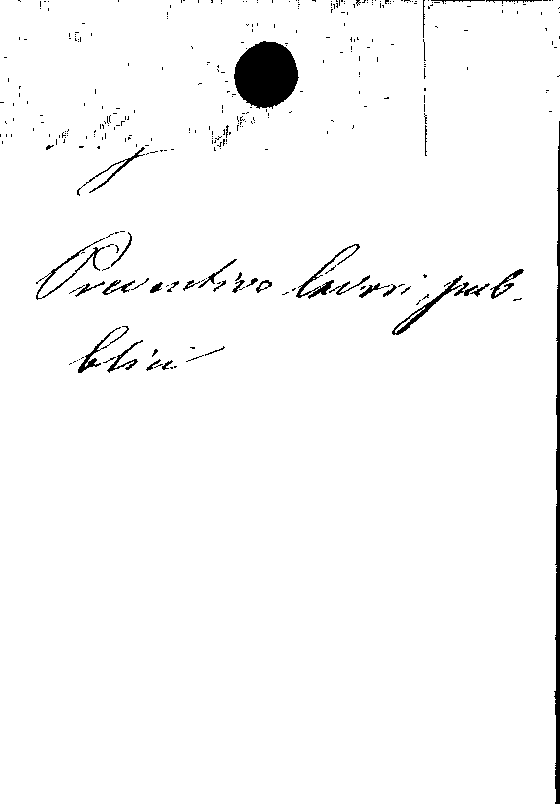 Preventivo lavori pub-
blici